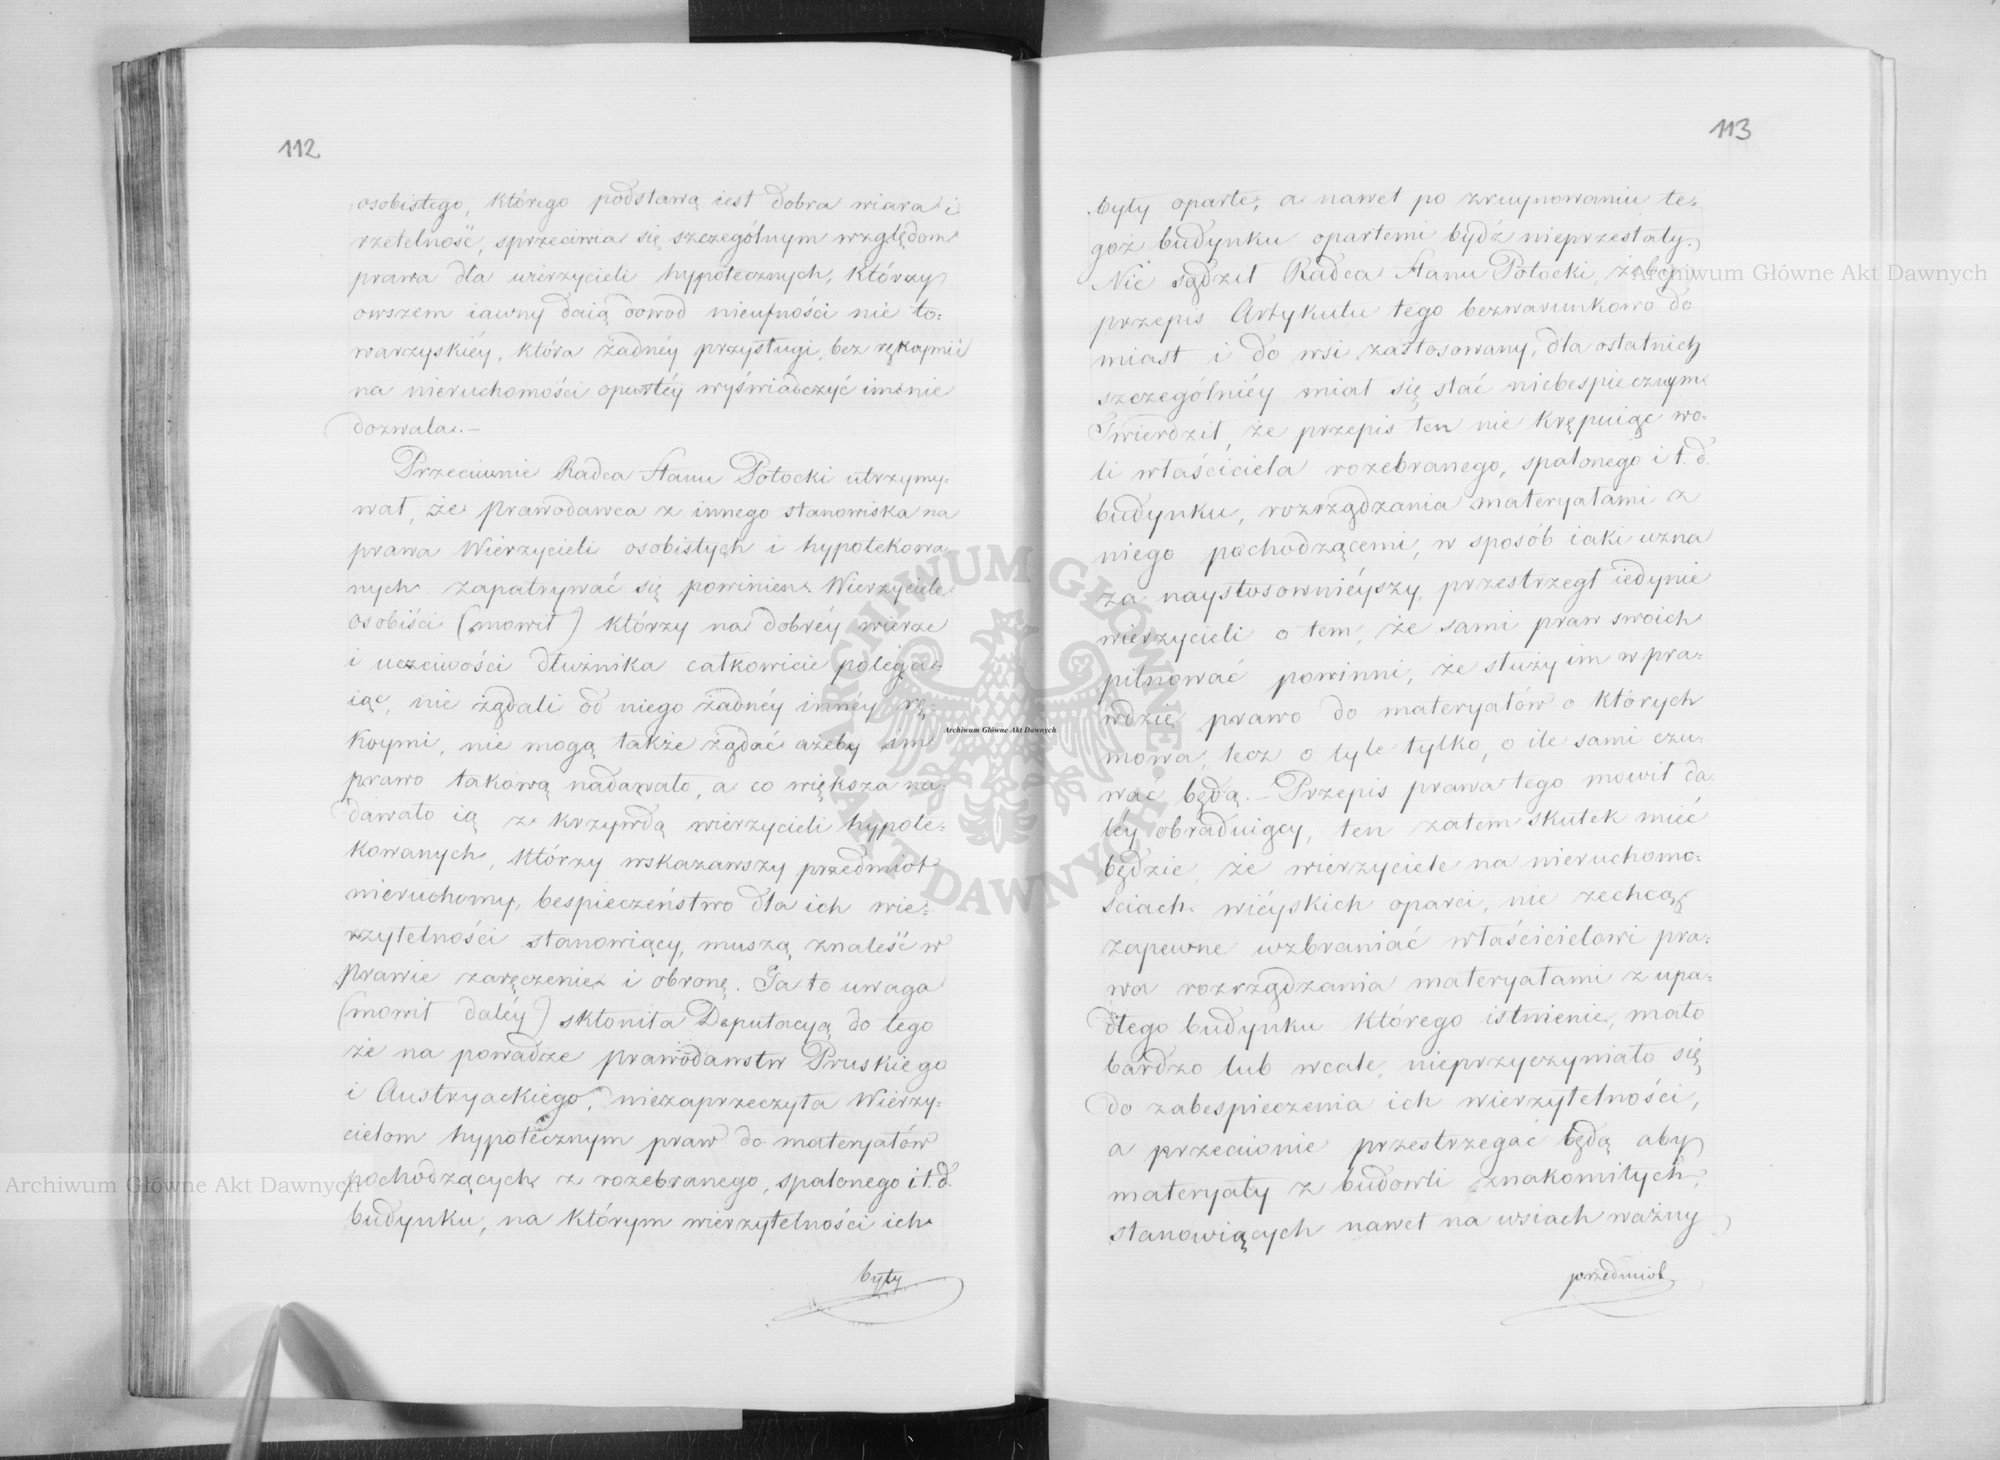 112
osobistego, którego podstawą iest dobra wiara i
rzetelność, sprzeciwia się szczególnym względom
prawa dla wierzycieli hypotecznych, którzy
owszem iawny daią dowod nieufności nie to=
warzyskiéy, która żadnéy przysługi, bez rękoymii
na nieruchomości opartéy wyświadczyć im nie
dozwala.—
Przeciwnie Radca Stanu Potocki utrzymy=
wał, że prawodawca z innego stanowiska na
prawa Wierzycieli osobistych i hypotekowa
nych zapatrywać się powinien. Wierzyciele
osobiści (mowił) którzy na dobréy wierze
i uczciwości dłużnika całkowicie polega=
iąc, nie żądali od niego żadnéy innéy rę=
koymi, nie mogą także żądać ażeby im
prawo takową nadawało, a co większa na=
dawało ią z krzywdą wierzycieli hypote=
kowanych, którzy wskazawszy przedmiot
nieruchomy, bespieczeństwo dla ich wie=
rzytelności stanowiący, muszą znaleść w
prawie zaręczenie i obronę. Ta to uwaga
(mowił daléy) skłoniła Deputacyą do tego
że na powadze prawodawstw Pruskiego
i Austryackiego, niezaprzeczyła Wierzy=
cielom hypotecznym praw do materyałów
pochodzących z rozebranego, spalonego i t. d.
budynku, na którym wierzytelności ich
były
113
były oparte, a nawet po zruynowaniu te=
goż budynku opartemi bydź nieprzestały.
Nie sądził Radca Stanu Potocki, żeby
przepis Artykułu tego bezwarunkowo do
miast i do wsi zastosowany, dla ostatnich
szczególniéy miał się stać niebespiecznym.
Twierdził, że przepis ten nie krępuiąc wo=
li właściciela rozebranego, spalonego i t. d.
budynku, rozrządzania materyałami z
niego pochodzącemi, w sposób iaki uzna
za naystosownieyszy, przestrzegł iedynie
wierzycieli o tem, że sami praw swoich
pilnować powinni, że służy im w pra=
wdzie prawo do materyałów o których
mowa, lecz o tyle tylko, o ile sami czu=
wać będą.— Przepis prawa tego mowił da
léy obraduiący, ten zatem skutek mieć
będzie, że wierzyciele na nieruchomo=
ściach wiéyskich oparci, nie zechcą
zapewne wzbraniać właścicielowi pra=
wa rozrządzania materyałami z upa=
dłego budynku którego istnienie, mało
bardzo lub wcale, nieprzyczyniało się
do zabespieczenia ich wierzytelności,
a przeciwnie przestrzegać będą aby
materyały z budowli znakomitych,
stanowiących nawet na wsiach ważny
przedmiot
Archiwum Główne Akt Dawnych
Archiwum Główne Akt Dawnych
Archiwum Główne Akt Dawnych
ARCHIWUM GŁÓWNE AKT DAWNYCH